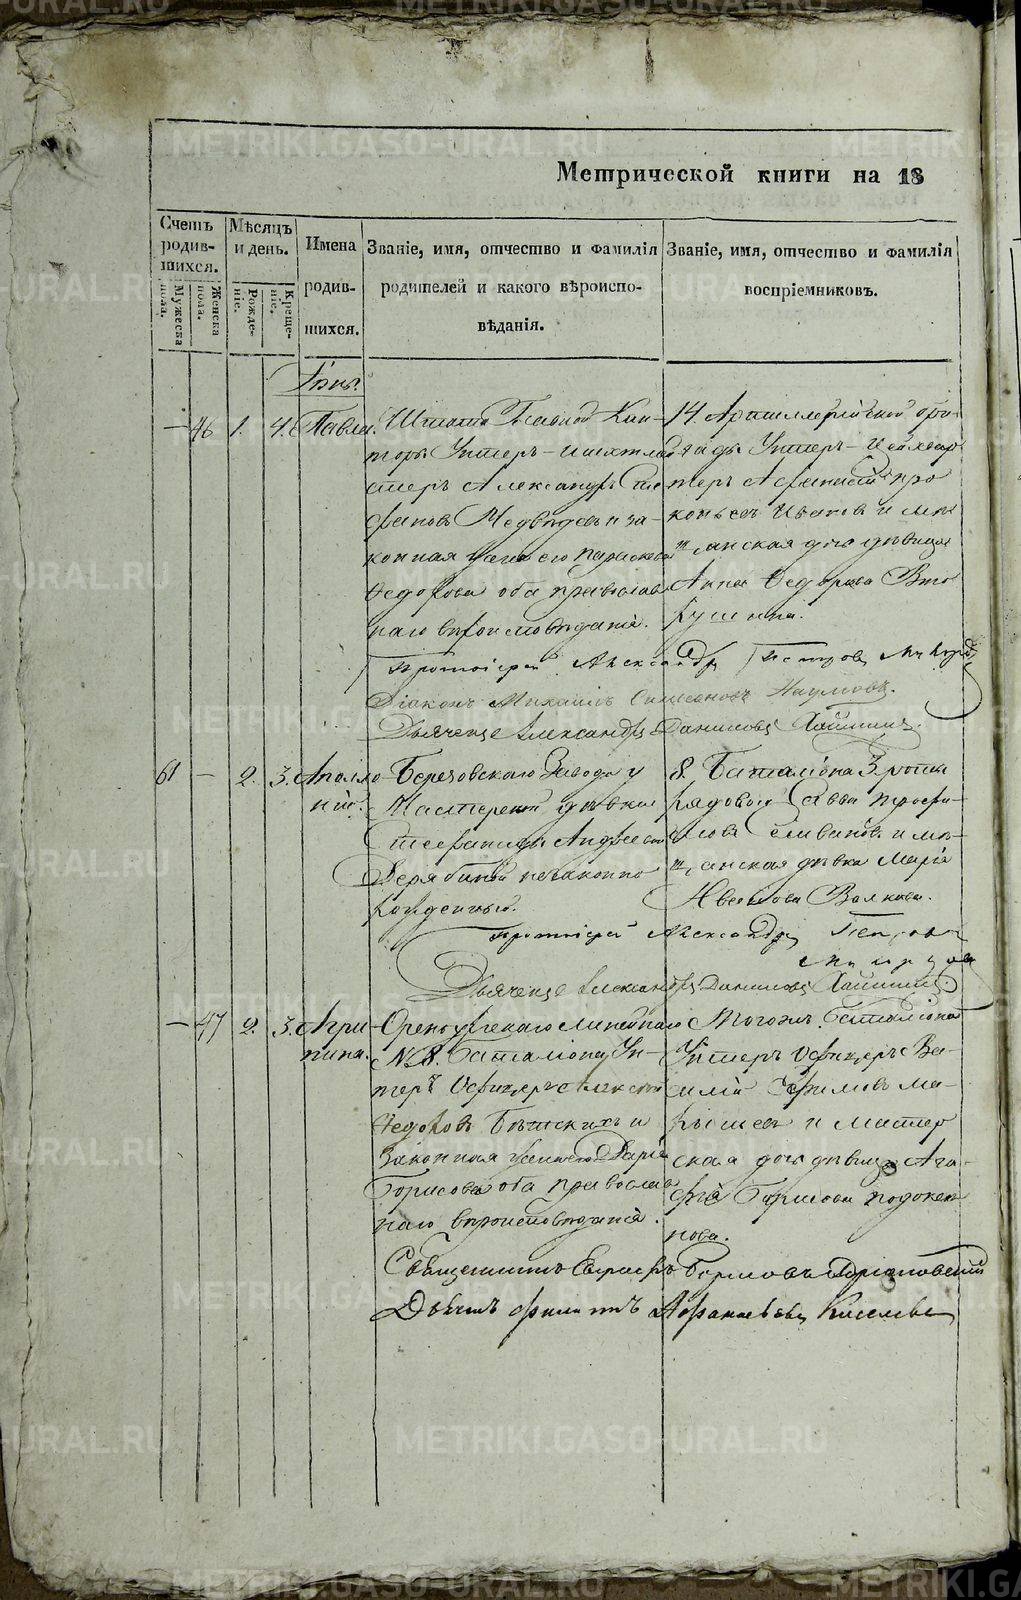 Метрической книги на 18
Счетъ родив-шихся.
Мужеска пола.
Женска пола.
Мѣсяцъ и день.
Рожде-ніе.
Креще-ніе.
Имена родив-шихся.
Званіе, имя, отчество и фамилія родителей и какого вѣроиспо-вѣданія.
Званіе, имя, отчество и фамилія воспріемниковъ.
Іюнь.
— 46 1. 4. Павла.
Штата Главной Кон-
торы Унтеръ-Шихтмей
стеръ Александръ Сте
фановъ Медвѣдевъ и за-
конная жена его Параскева
Федорова оба православ
наго вѣроисповѣданія.
14. Артиллерійской бри-
гады Унтеръ-Цейхвар
теръ Афанасій Про
копьевъ Ивановъ и мѣ
щанская дочь дѣвица
Анна Федорова Вто
рушина.
Протоіерей Александръ Петровъ
Діаконъ Михаилъ Симеоновъ Наумовъ.
Дьячекъ Александръ Даниловъ
61 — 2. 3. Аполло
ній.
Березовскаго Завода у
Мастерской дѣвки
Серафимы Андреевой
Дерябиной незаконно
рожденный.
8. Баталіона 3. роты
рядовой Савва Трофи-
мовъ Селивановъ и мѣ-
щанская дѣвка Марія
Волкова.
Протоіерей Александръ Петровъ
Дьячекъ Александръ Даниловъ
— 47 2. 3. Агри-
пина.
Оренбургскаго Линейнаго
№ 8. Баталіона Ун-
теръ Офицеръ Алексѣй
Федоровъ и
законная жена его Дарія
Борисова оба православ
наго вѣроисповѣданія.
Тогожъ Баталіона
Унтеръ Офицеръ Ва-
силій Ефимовъ Ма-
рышевъ и мастер
ская дочь дѣвица Ага-
фія Борисова
нова.
Священникъ Борисовъ
Дьячекъ Филиппъ Афанасьевъ Киселевъ
METRIKI.GASO-URAL.RU